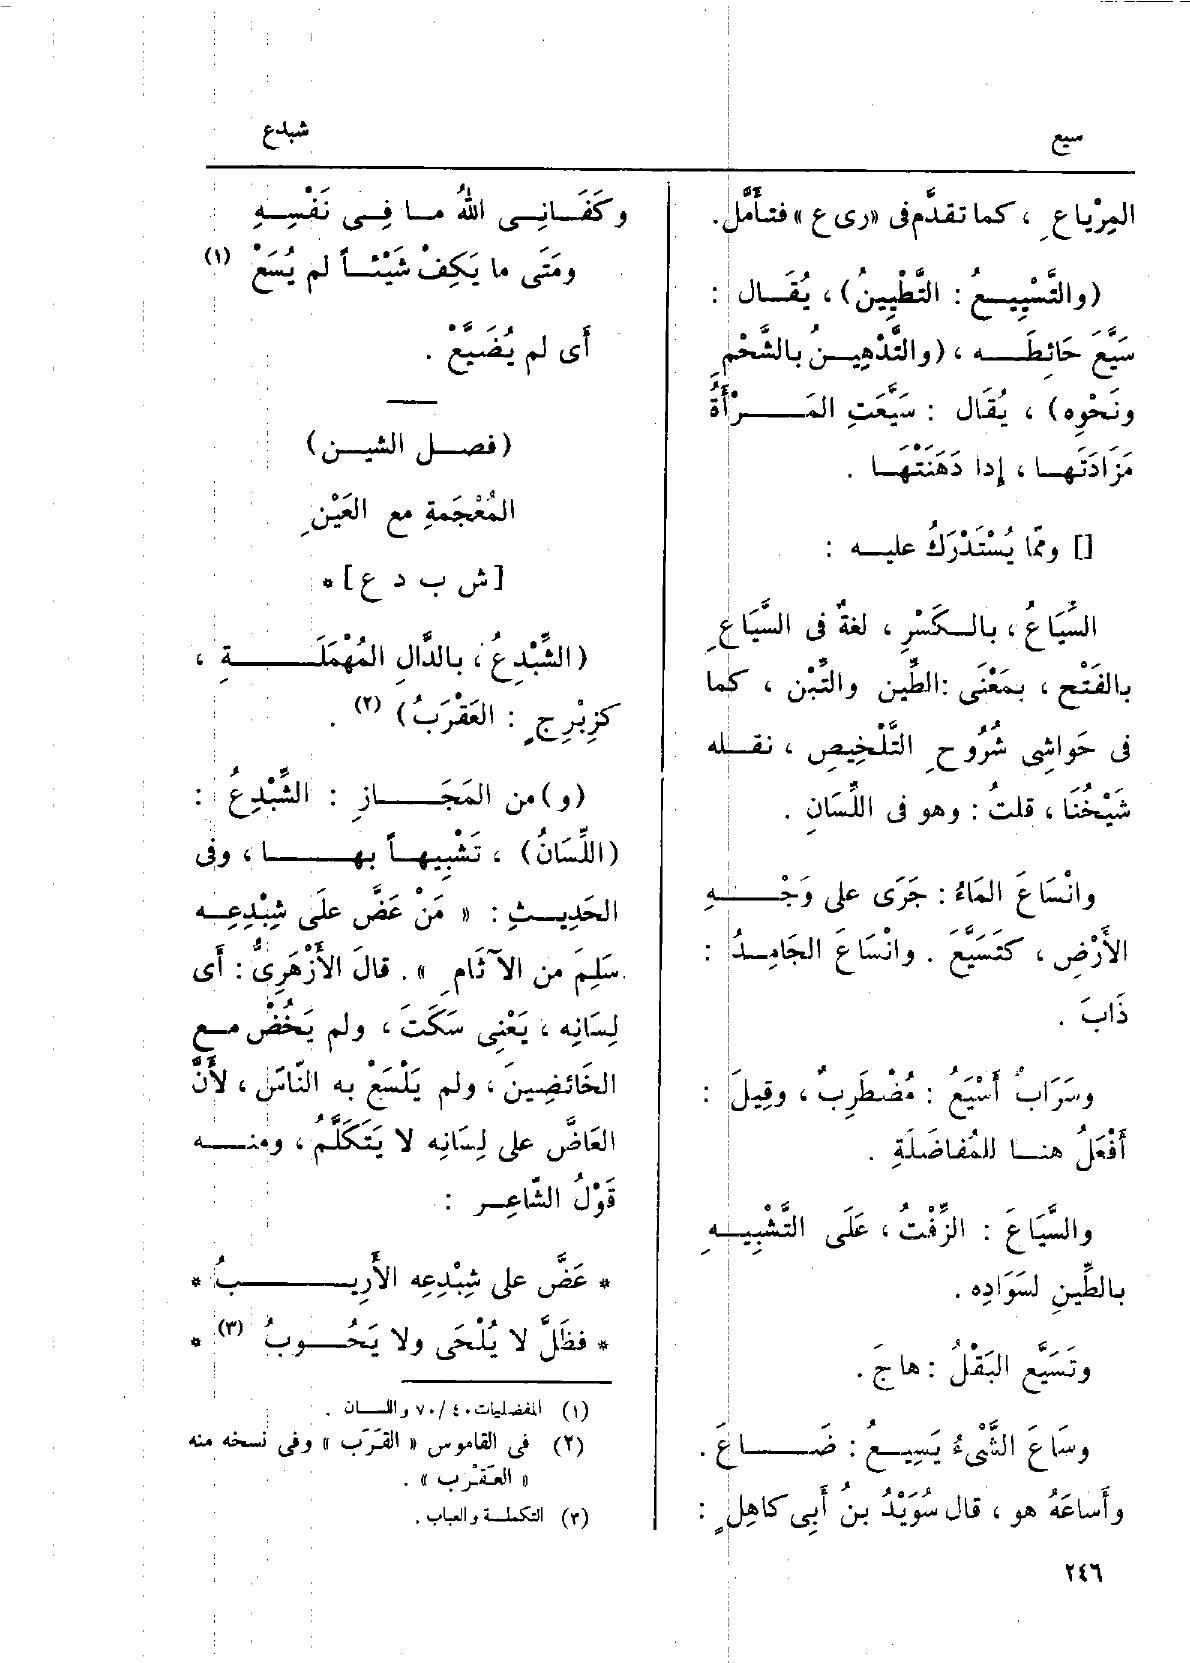 سيع
شبدع
المِرْياعِ ، كما تقدَّم فى «رى ع» فتأَمَّل.
(والتَّسْيِيعُ : التَّطْيِينُ) ، يُقَال :
سَيَّعَ حَائِطَه ، (والتَّدْهِينُ بالشَّحْمِ
ونَحْوِه) ، يُقَال : سَيَّعَتِ المَرْأَةُ
مَزَادَتَها ، إدا دَهَنَتْهَا .
[] وممّا يُسْتَدْرَكُ عليه :
السِّيَاعُ ، بالكَسْرِ ، لغةٌ فى السَّيَاعِ
بالفَتْح ، بمَعْنَى :الطِّين والتِّبْن ، كما
فى حَواشِى شُرُوحِ التَّلْخِيصِ ، نقله
شَيْخُنَا ، قلتُ : وهو فى اللِّسَانِ .
وانْسَاعَ المَاءُ : جَرَى على وَجْهِ
الأَرْضِ ، كتَسَيَّعَ . وانْسَاعَ الجَامِدُ :
ذَابَ .
وسَرَابٌ أَسْيَعُ : مُضْطَرِبٌ ، وقِيلَ :
أَفْعَلُ هنا للمُفاضَلَةِ .
والسَّيَاعَ : الزِّفْتُ ، عَلَى التَّشْبِيهِ
بالطِّينِ لسَوَادِه .
وتَسَيَّع البَقْلُ : هاجَ .
وسَاعَ الشَّىْءُ يَسِيعُ : ضَاعَ .
وأَساعَهُ هو ، قال سُوَيْدُ بنُ أَبِى كاهِلٍ :
وكَفَانِى اللهُ ما فِى نَفْسِهِ
ومَتَى ما يَكِفْ شَيْئاً لم يُسَعْ (١)
أَى لم يُضَيَّعْ .
(فصل الشين)
المُعْجَمةِ مع العَيْنِ
[ش ب د ع] *
(الشِّبْدِعُ ، بالدَّالِ المُهْمَلَةِ ،
كزِبْرِجٍ : العَقْرَبُ) (٢) .
(و) من المَجَازِ : الشِّبْدِعُ :
(اللِّسَانُ) ، تَشْبِيهاً بها ، وفى
الحَدِيثِ : « مَنْ عَضَّ علَى شِبْدِعِه
سَلِمَ من الآثَامِ ». قالَ الأَزْهَرِىُّ : أَى
لِسَانِه ، يَعْنِى سَكَتَ ، ولم يَخُضْ مع
الخَائضِينَ ، ولم يَلْسَعْ به النَّاسَ ، لأَنَّ
العَاضَّ على لِسَانِه لا يَتَكَلَّمُ ، ومنه
قَوْلُ الشّاعِر :
* عَضَّ على شِبْدِعِه الأَرِيبُ *
* فظَلَّ لا يُلْحَى ولا يَحُوبُ (٣) *
(١) المفضليات ٤٠ /٧٠ واللسان .
(٢) فى القاموس « القَرَب » وفى نسخه منه
« العَقْرب » .
(٣) التكملة والعباب .
٢٤٦